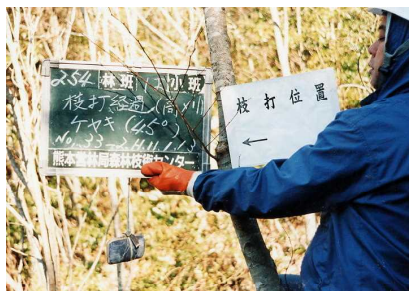 254 林班 小班
枝打経過(高〆リ
ケヤキ(45°)
No.33-2 H11.1.13
熊本営林局森林技術センター
枝打位置
←